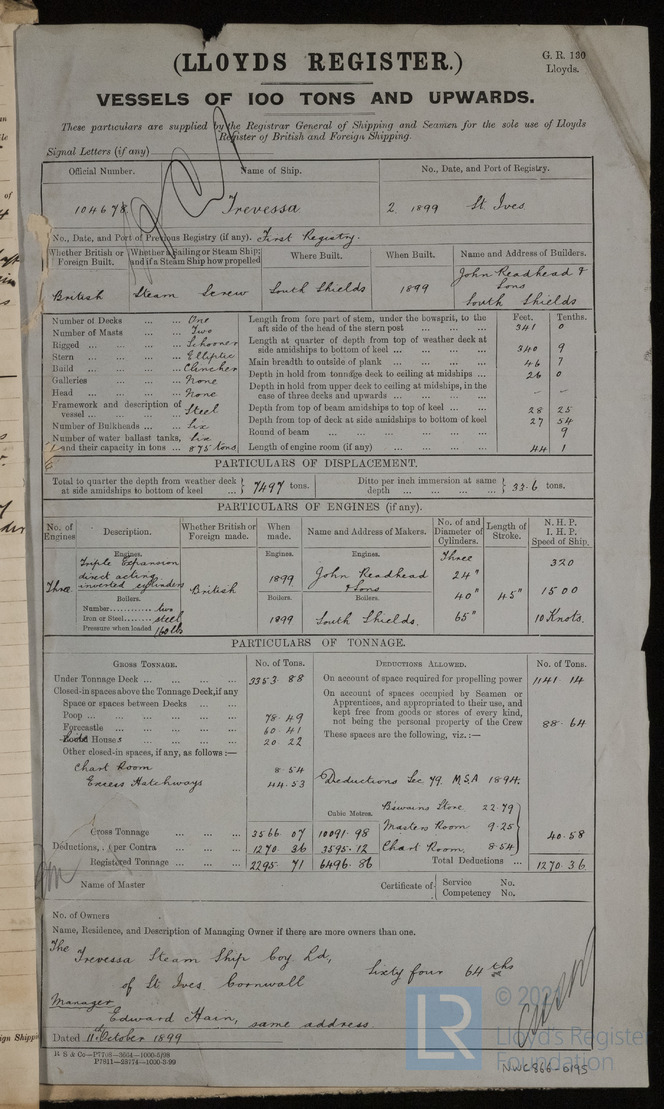 (LLOYDS REGISTER.)
G. R. 130
Lloyds.
VESSELS OF 100 TONS AND UPWARDS.
These particulars are supplied by the Registrar General of Shipping and Seamen for the sole use of Lloyds
Register of British and Foreign Shipping.
Signal Letters (if any)
Official Number. Name of Ship. No., Date, and Port of Registry.
104678 Trevessa 2 1899 St Ives
No., Date, and Port of Previous Registry (if any). First Registry.
Whether British or Foreign Built. Whether a Sailing or Steam Ship; and if a Steam Ship how propelled Where Built. When Built. Name and Address of Builders.
British Steam Screw South Shields 1899 John Readhead & Sons South Shields
Number of Decks ... ... One
Number of Masts ... ... Two
Rigged ... ... ... Schooner
Stern ... ... ... Elliptic
Build ... ... ... Clencher
Galleries ... ... ... None
Head ... ... ... None
Framework and description of vessel ... ... ... Steel
Number of Bulkheads ... ... Six
Number of water ballast tanks, Six
and their capacity in tons ... 875 tons
Feet. Tenths.
Length from fore part of stem, under the bowsprit, to the aft side of the head of the stern post ... ... ... 341 0
Length at quarter of depth from top of weather deck at side amidships to bottom of keel ... ... ... 340 9
Main breadth to outside of plank ... ... ... 46 7
Depth in hold from tonnage deck to ceiling at midships ... 26 0
Depth in hold from upper deck to ceiling at midships, in the case of three decks and upwards ... ... ... – –
Depth from top of beam amidships to top of keel ... ... 28 25
Depth from top of deck at side amidships to bottom of keel 27 54
Round of beam ... ... ... 9
Length of engine room (if any) ... ... ... 44 1
PARTICULARS OF DISPLACEMENT.
Total to quarter the depth from weather deck at side amidships to bottom of keel ... 7497 tons. Ditto per inch immersion at same depth ... ... ... 33.6 tons.
PARTICULARS OF ENGINES (if any).
No. of Engines Description. Whether British or Foreign made. When made. Name and Address of Makers. No. of and Diameter of Cylinders. Length of Stroke. N. H. P. I. H. P. Speed of Ship.
Engines. Engines. Engines.
Three Triple Expansion direct acting inverted cylinders British 1899 John Readhead & Sons Three 24" 40" 65" 45" 320 1500 10 Knots.
Boilers. Boilers. Boilers.
Number............ two
Iron or Steel....... steel 1899 South Shields.
Pressure when loaded 160 lbs
PARTICULARS OF TONNAGE.
GROSS TONNAGE. No. of Tons. DEDUCTIONS ALLOWED. No. of Tons.
Under Tonnage Deck ... ... ... 3353.88
Closed-in spaces above the Tonnage Deck, if any
Space or spaces between Decks ... ...
Poop ... ... ... 78.49
Forecastle ... ... ... 60.41
Houses ... ... ... 20 22
Other closed-in spaces, if any, as follows:—
Chart Room 8.54
Excess Hatchways 44.53
On account of space required for propelling power 1141 14
On account of spaces occupied by Seamen or Apprentices, and appropriated to their use, and kept free from goods or stores of every kind, not being the personal property of the Crew 88.64
These spaces are the following, viz.:—
Deductions Sec 79. M.S.A 1894.
Cubic Metres.
Bswains Store 22.79
Masters Room 9.25
Chart Room 8.54
40.58
Gross Tonnage ... ... ... 3566 07 10091.98
Deductions, as per Contra ... ... 1270 36 3595.12
Registered Tonnage ... ... 2295 71 6496.86
Total Deductions ... 1270.36
Name of Master Certificate of Service No. Competency No.
No. of Owners
Name, Residence, and Description of Managing Owner if there are more owners than one.
The Trevessa Steam Ship Coy Ld,
of St Ives Cornwall Sixty four 64ths
Manager
Edward Hain, same address
Dated 11th October 1899
LR
Lloyd's Register
Foundation
NWC866-0195